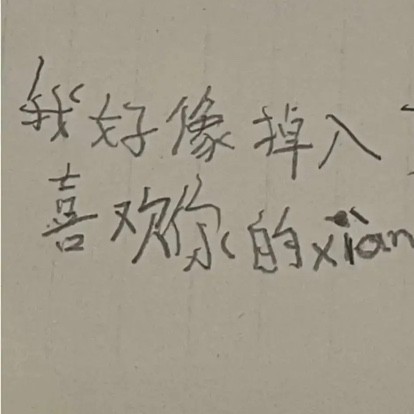 我好像掉入
喜欢你的xian